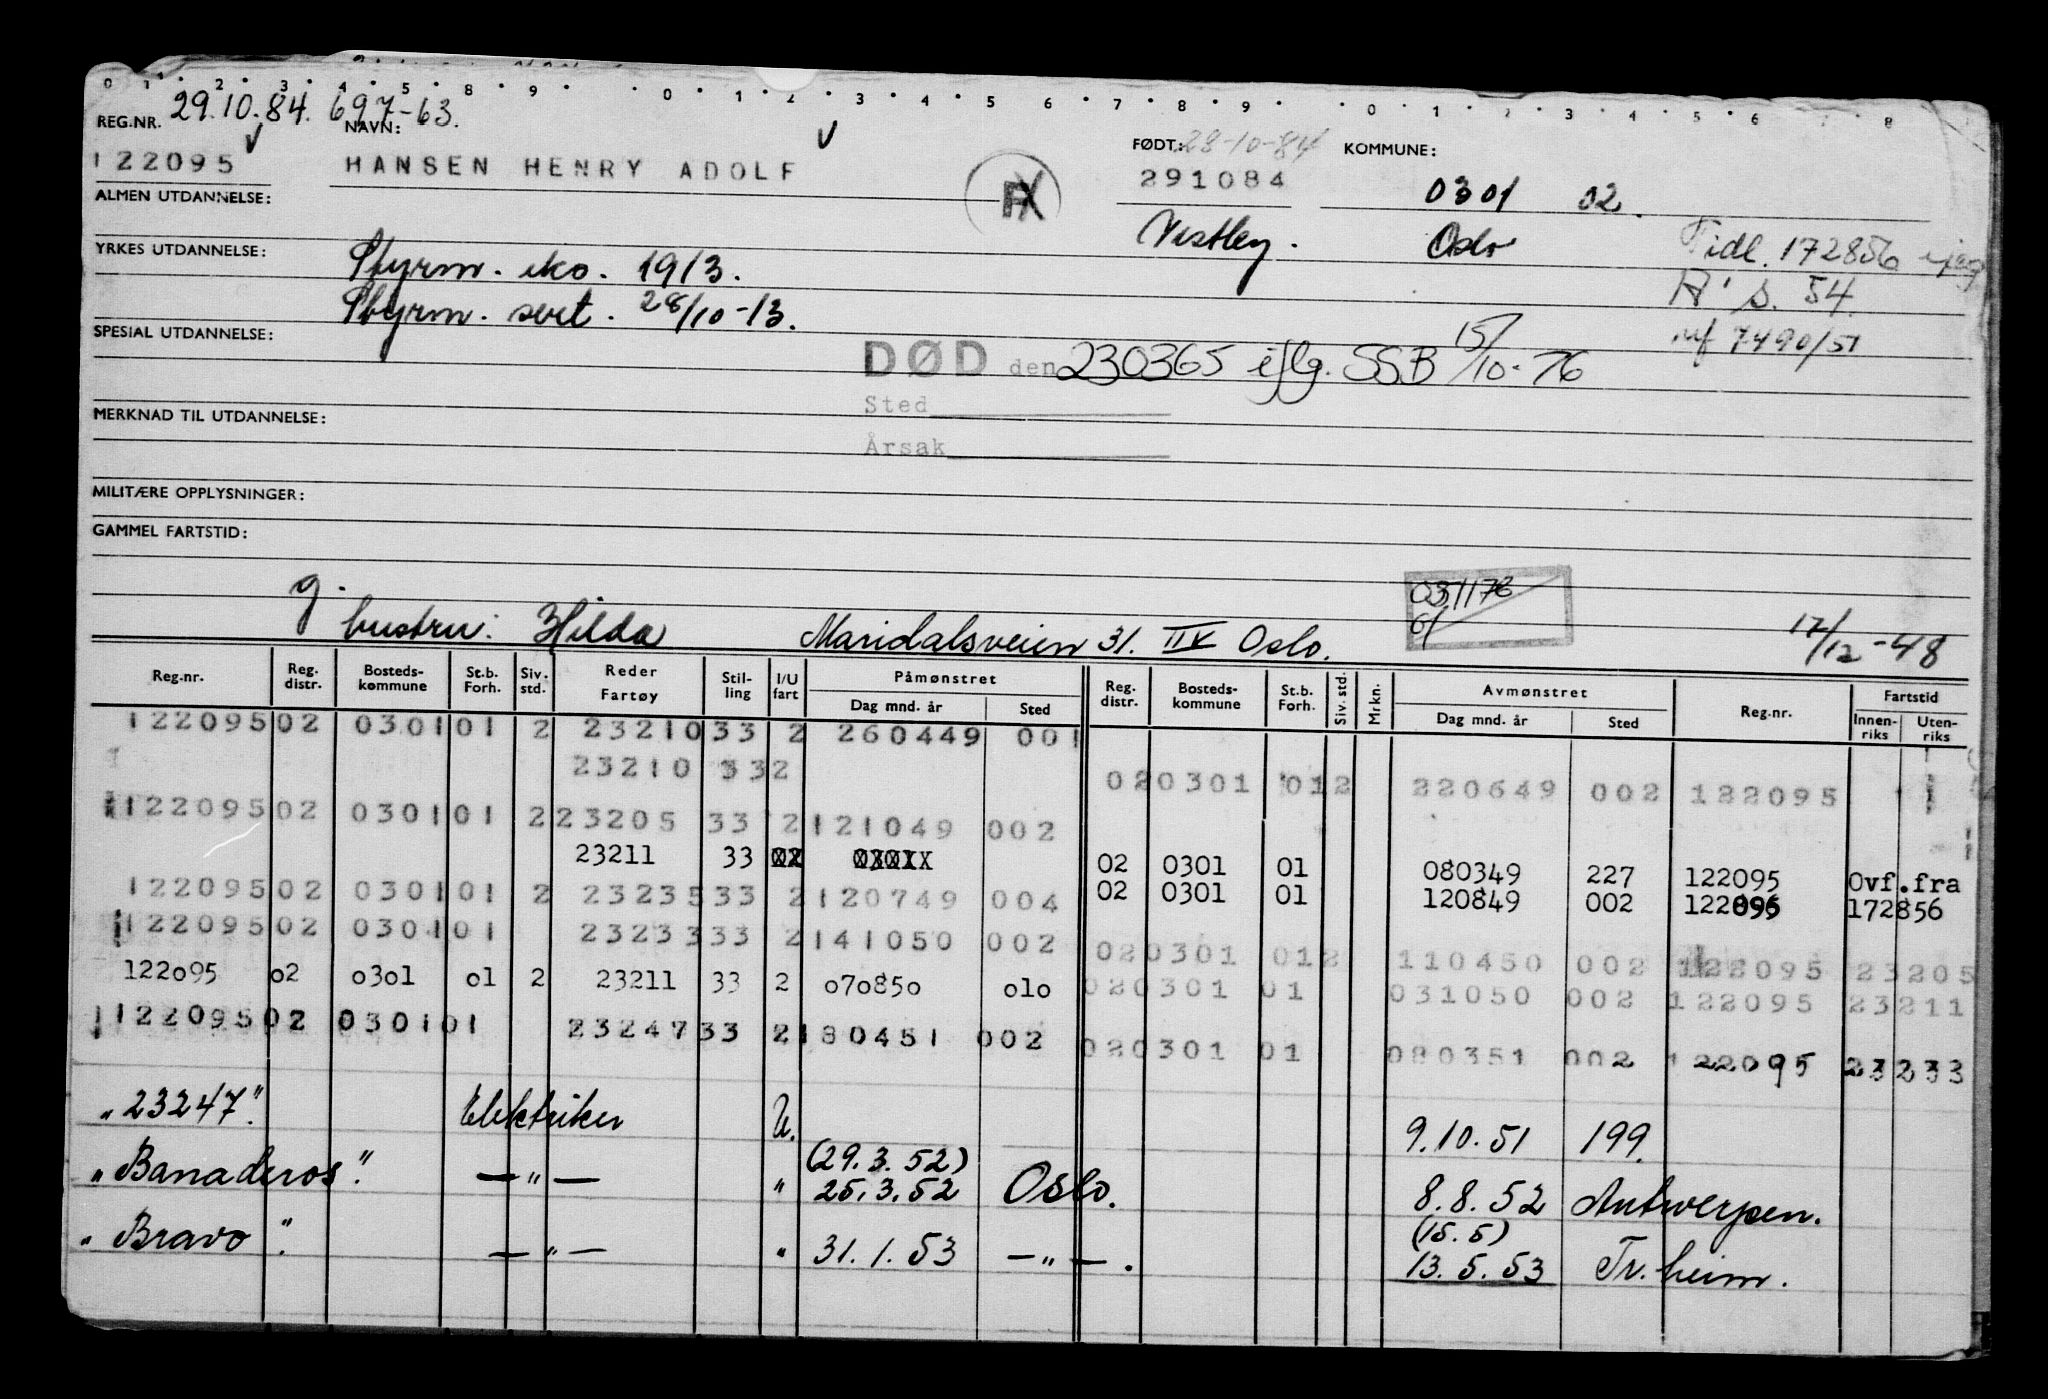 0 1 2 3 4 5 8 9 0 1 2 3 4 5 6 7 8 9 0 1 2 3 4 5 6 8
29.10.84. 697-63.
REG.NR. NAVN: FØDT: 28-10-84 KOMMUNE:
122095 HANSEN HENRY ADOLF 291084 0301 02.
ALMEN UTDANNELSE: Vestby. Oslo Tidl. 172856
YRKES UTDANNELSE: Styrm. eks. 1913. s. 54.
Styrm. sert. 28/10-13. 7490/51
SPESIAL UTDANNELSE: DØD den 230365 iflg. SSB 15/10-76
Sted
MERKNAD TIL UTDANNELSE:
Årsak
MILITÆRE OPPLYSNINGER:
GAMMEL FARTSTID:
g. 031176
hustru: Hilda Maridalsveien 31. IV Oslo. 17/12-48
Reg.nr. Reg. distr. Bosteds-kommune St.b. Forh. Siv. std. Reder Fartøy Stil-ling I/U fart Påmønstret Dag mnd. år Sted Reg. distr. Bosteds-kommune St.b. Forh. Siv. std. Mrkn. Avmønstret Dag mnd. år Sted Reg.nr. Fartstid Innen-riks Uten-riks
122095 02 0301 01 2 23210 33 2 260449 001
23210 33 2 02 0301 01 2 220649 002 122095
122095 02 0301 01 2 23205 33 2 121049 002
23211 33 02 0301 01 080349 227 122095 Ovf.fra
122095 02 0301 01 2 23235 33 2 120749 004 02 0301 01 120849 002 122095 172856
122095 02 0301 01 23233 33 2 141050 002 02 0301 01 2 110450 002 122095 23205
122095 02 0301 01 2 23211 33 2 070850 010 02 0301 01 031050 002 122095 23211
122095 02 0301 01 23247 33 2 180451 002 02 0301 01 080351 002 122095 23233
"23247". Elektriker U. 9.10.51 199.
(29.3.52)
"Banaderos". —"— " 25.3.52 Oslo. 8.8.52 Antwerpen.
(15.5)
"Bravo". —"— " 31.1.53 —"—. 13.5.53 Tr.heim.